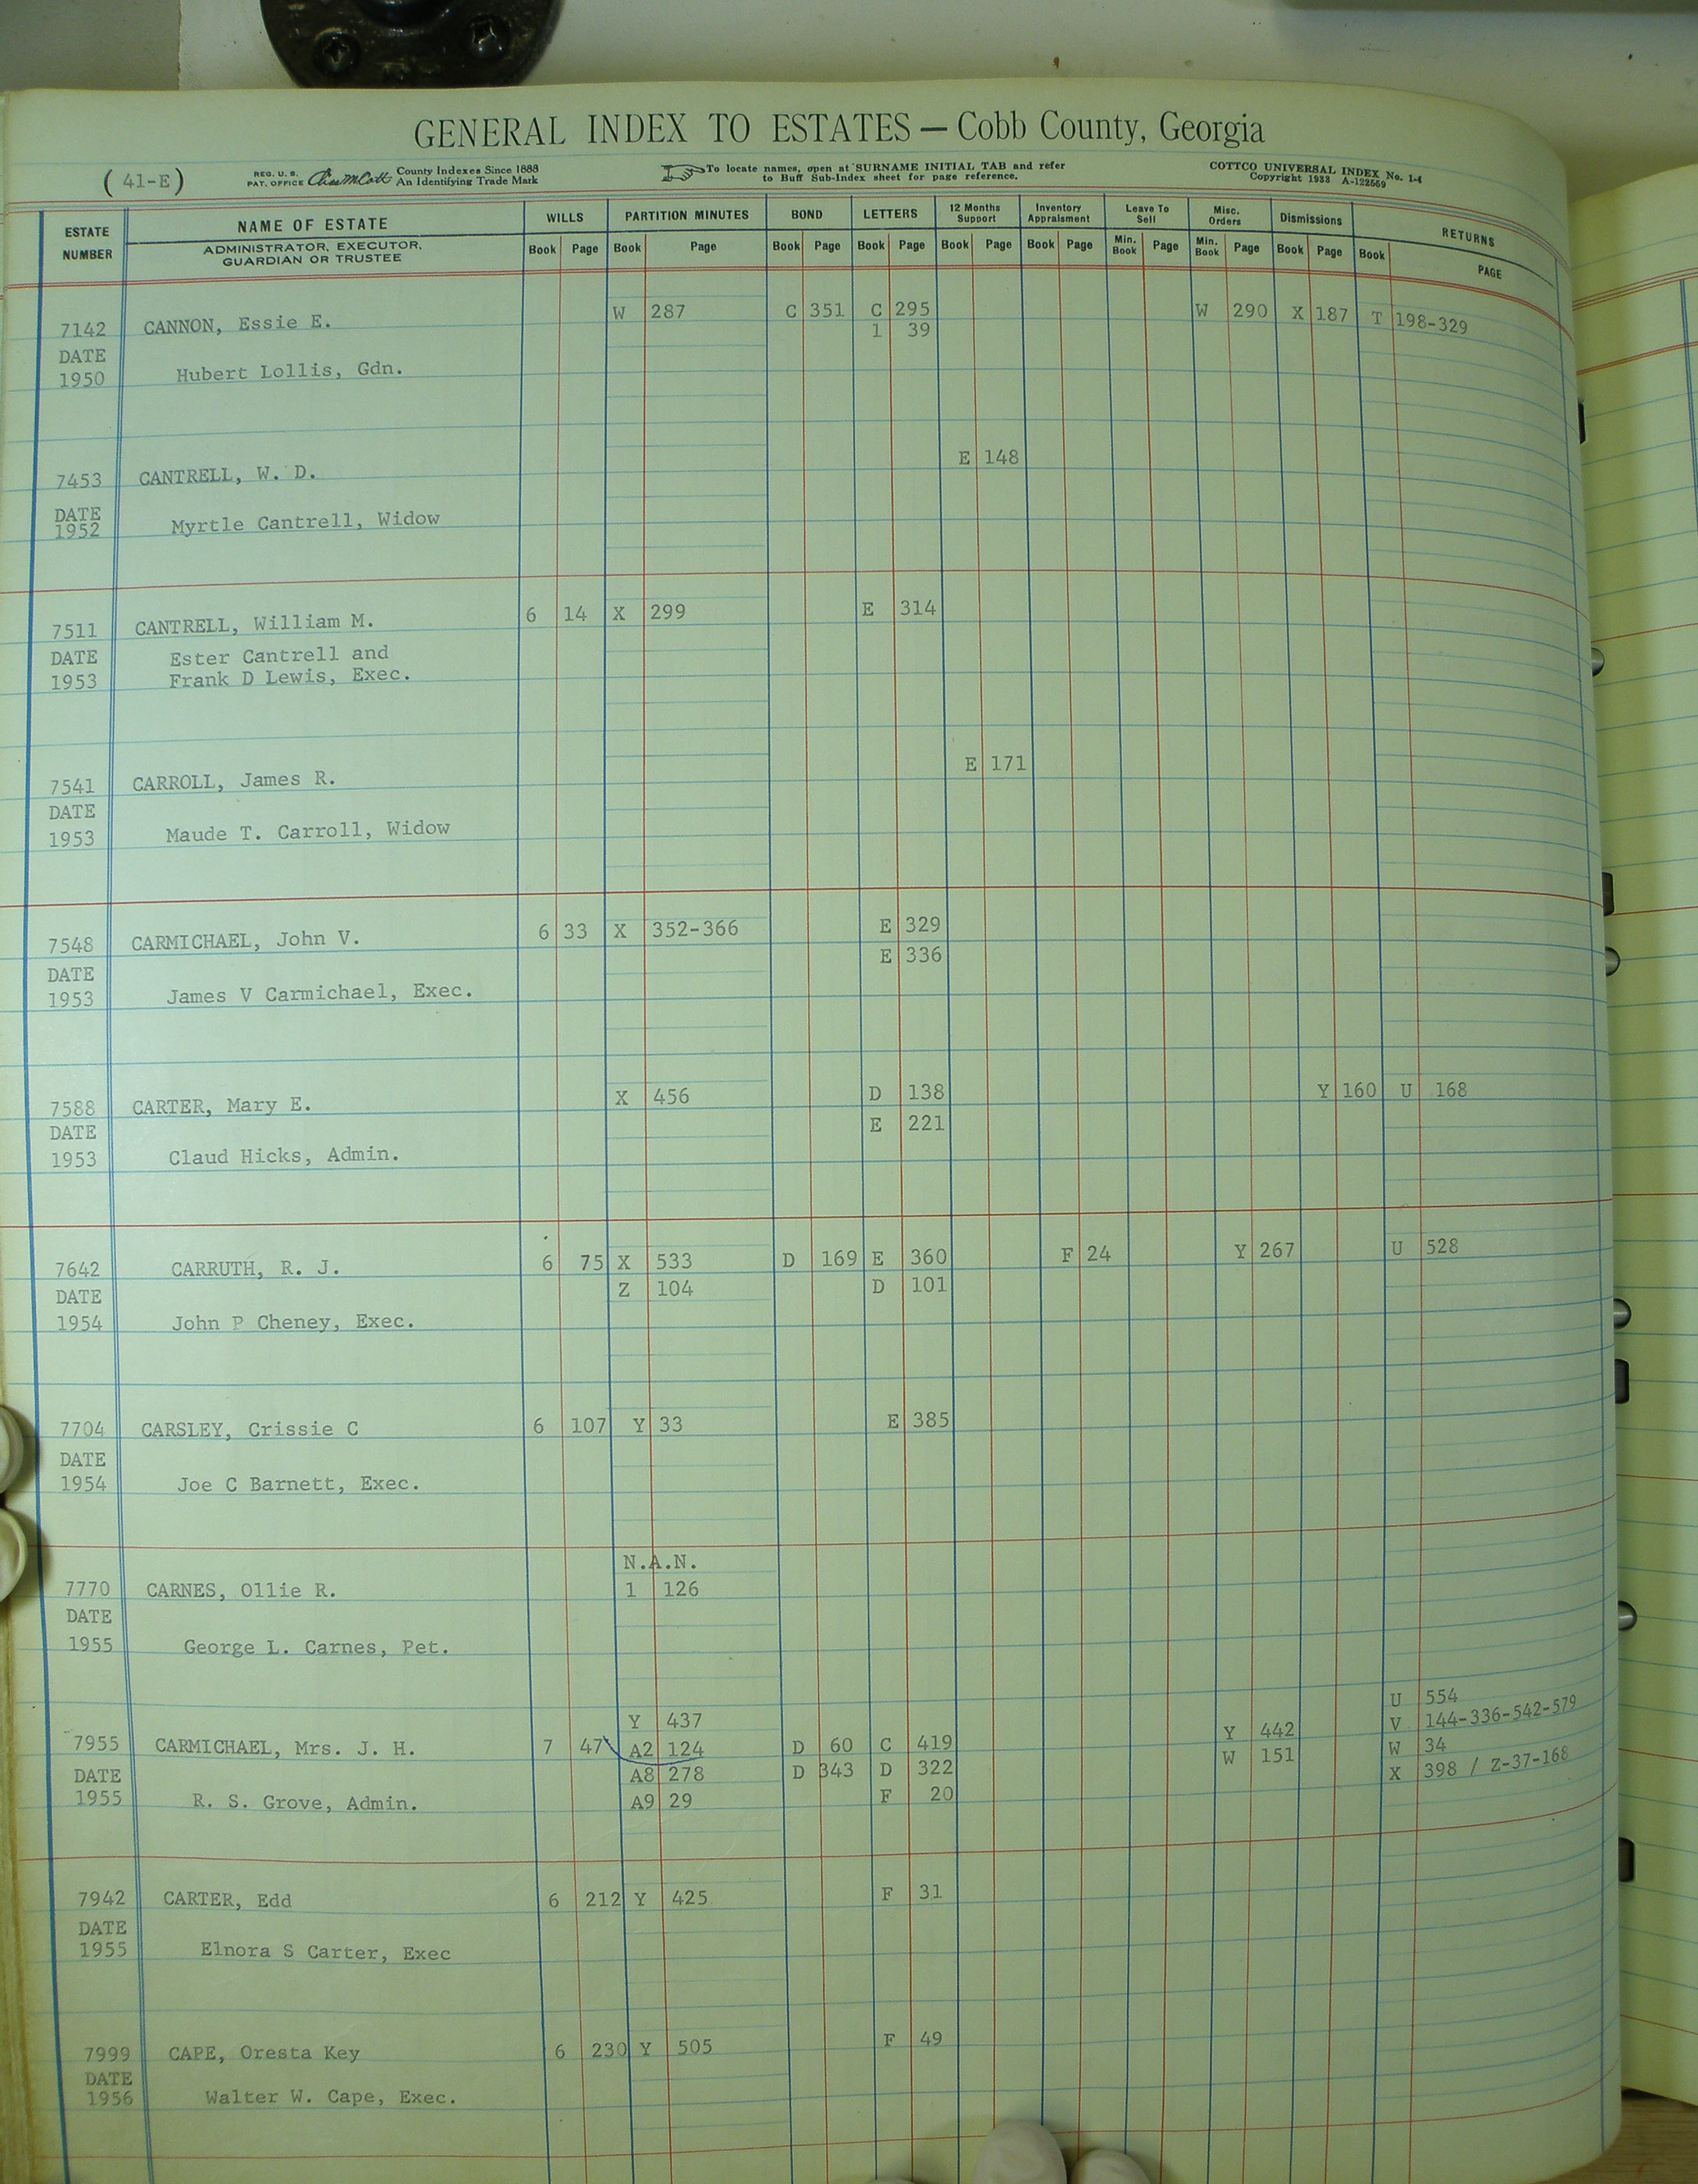 GENERAL INDEX TO ESTATES — Cobb County, Georgia
( 41-E )
REG. U. S. PAT. OFFICE
County Indexes Since 1888
An Identifying Trade Mark
To locate names, open at SURNAME INITIAL TAB and refer
to Buff Sub-Index sheet for page reference.
COTTCO UNIVERSAL INDEX No. 1-4
Copyright 1938 A-122569
ESTATE NUMBER
NAME OF ESTATE
ADMINISTRATOR, EXECUTOR,
GUARDIAN OR TRUSTEE
WILLS PARTITION MINUTES BOND LETTERS 12 Months Support Inventory Appraisment Leave To Sell Misc. Orders Dismissions RETURNS
Book Page Book Page Book Page Book Page Book Page Book Page Min. Book Page Min. Book Page Book Page Book PAGE
7142 CANNON, Essie E. W 287 C 351 C 295 W 290 X 187 T 198-329
1 39
DATE
1950 Hubert Lollis, Gdn.
7453 CANTRELL, W. D. E 148
DATE
1952 Myrtle Cantrell, Widow
7511 CANTRELL, William M. 6 14 X 299 E 314
DATE Ester Cantrell and
1953 Frank D Lewis, Exec.
7541 CARROLL, James R. E 171
DATE
1953 Maude T. Carroll, Widow
7548 CARMICHAEL, John V. 6 33 X 352-366 E 329
E 336
DATE
1953 James V Carmichael, Exec.
7588 CARTER, Mary E. X 456 D 138 Y 160 U 168
DATE E 221
1953 Claud Hicks, Admin.
7642 CARRUTH, R. J. 6 75 X 533 D 169 E 360 F 24 Y 267 U 528
DATE Z 104 D 101
1954 John P Cheney, Exec.
7704 CARSLEY, Crissie C 6 107 Y 33 E 385
DATE
1954 Joe C Barnett, Exec.
N.A.N.
7770 CARNES, Ollie R. 1 126
DATE
1955 George L. Carnes, Pet.
U 554
Y 437 V 144-336-542-579
7955 CARMICHAEL, Mrs. J. H. 7 47 A2 124 D 60 C 419 Y 442 W 34
DATE A8 278 D 343 D 322 W 151 X 398 / Z-37-168
1955 R. S. Grove, Admin. A9 29 F 20
7942 CARTER, Edd 6 212 Y 425 F 31
DATE
1955 Elnora S Carter, Exec
7999 CAPE, Oresta Key 6 230 Y 505 F 49
DATE
1956 Walter W. Cape, Exec.